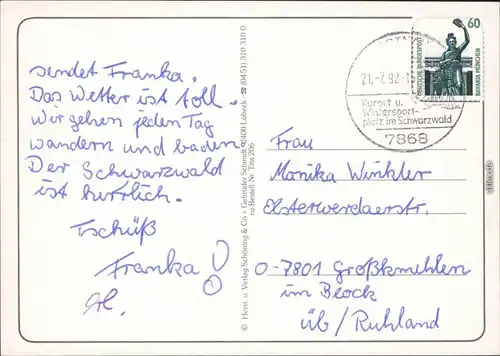 sendet Franka.
Das Wetter ist toll.
Wir gehen jeden Tag
wandern und baden.
Der Schwarzwald
ist herrlich.
Tschüß
Franka!
© Herst. u. Verlag Schöning & Co + Gebrüder Schmidt
Lübeck ☎ (04 51) 310 310 0
21.-7.92-1
Kurort u.
Wintersport-
platz im Schwarzwald
7868
60
DEUTSCHE BUNDESPOST
BAVARIA MÜNCHEN
Frau
Monika Winkler
Elsterwerdaerstr.
O-7801 Großkmehlen
im Block
üb/Ruhland